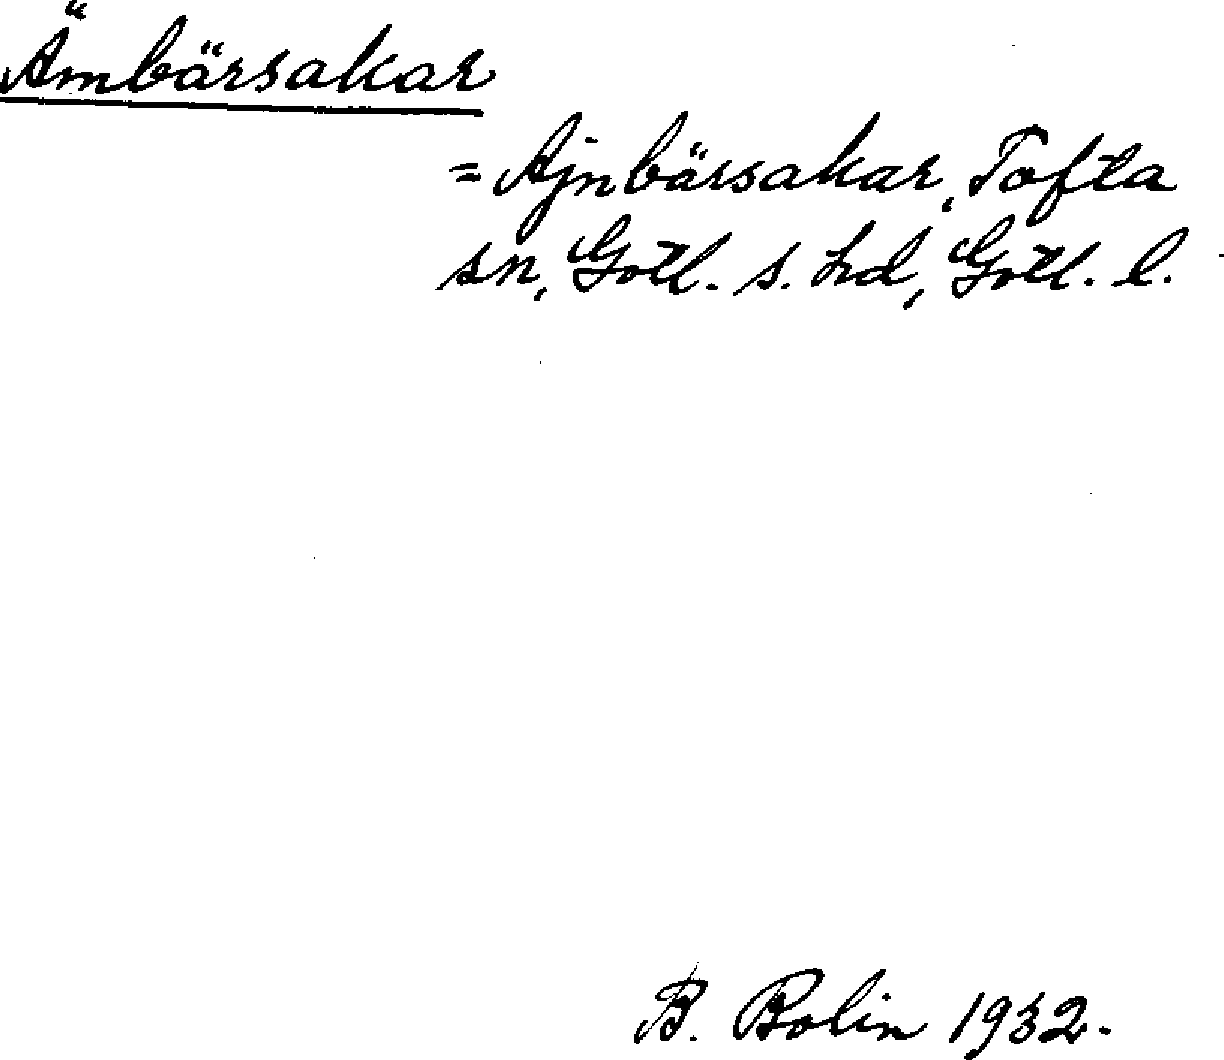 Ämbärsakar
= Ajnbärsakar, Tofta
sn, Gotl. s. hd, Gotl. l.
B. Bolin 1932.